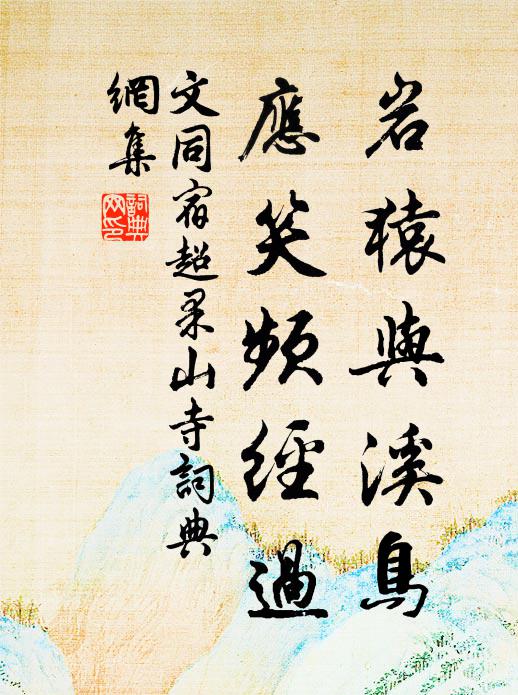 岩猿與溪鳥
應笑頻經過
文同宿超果山寺詞典
網集
詞典網印